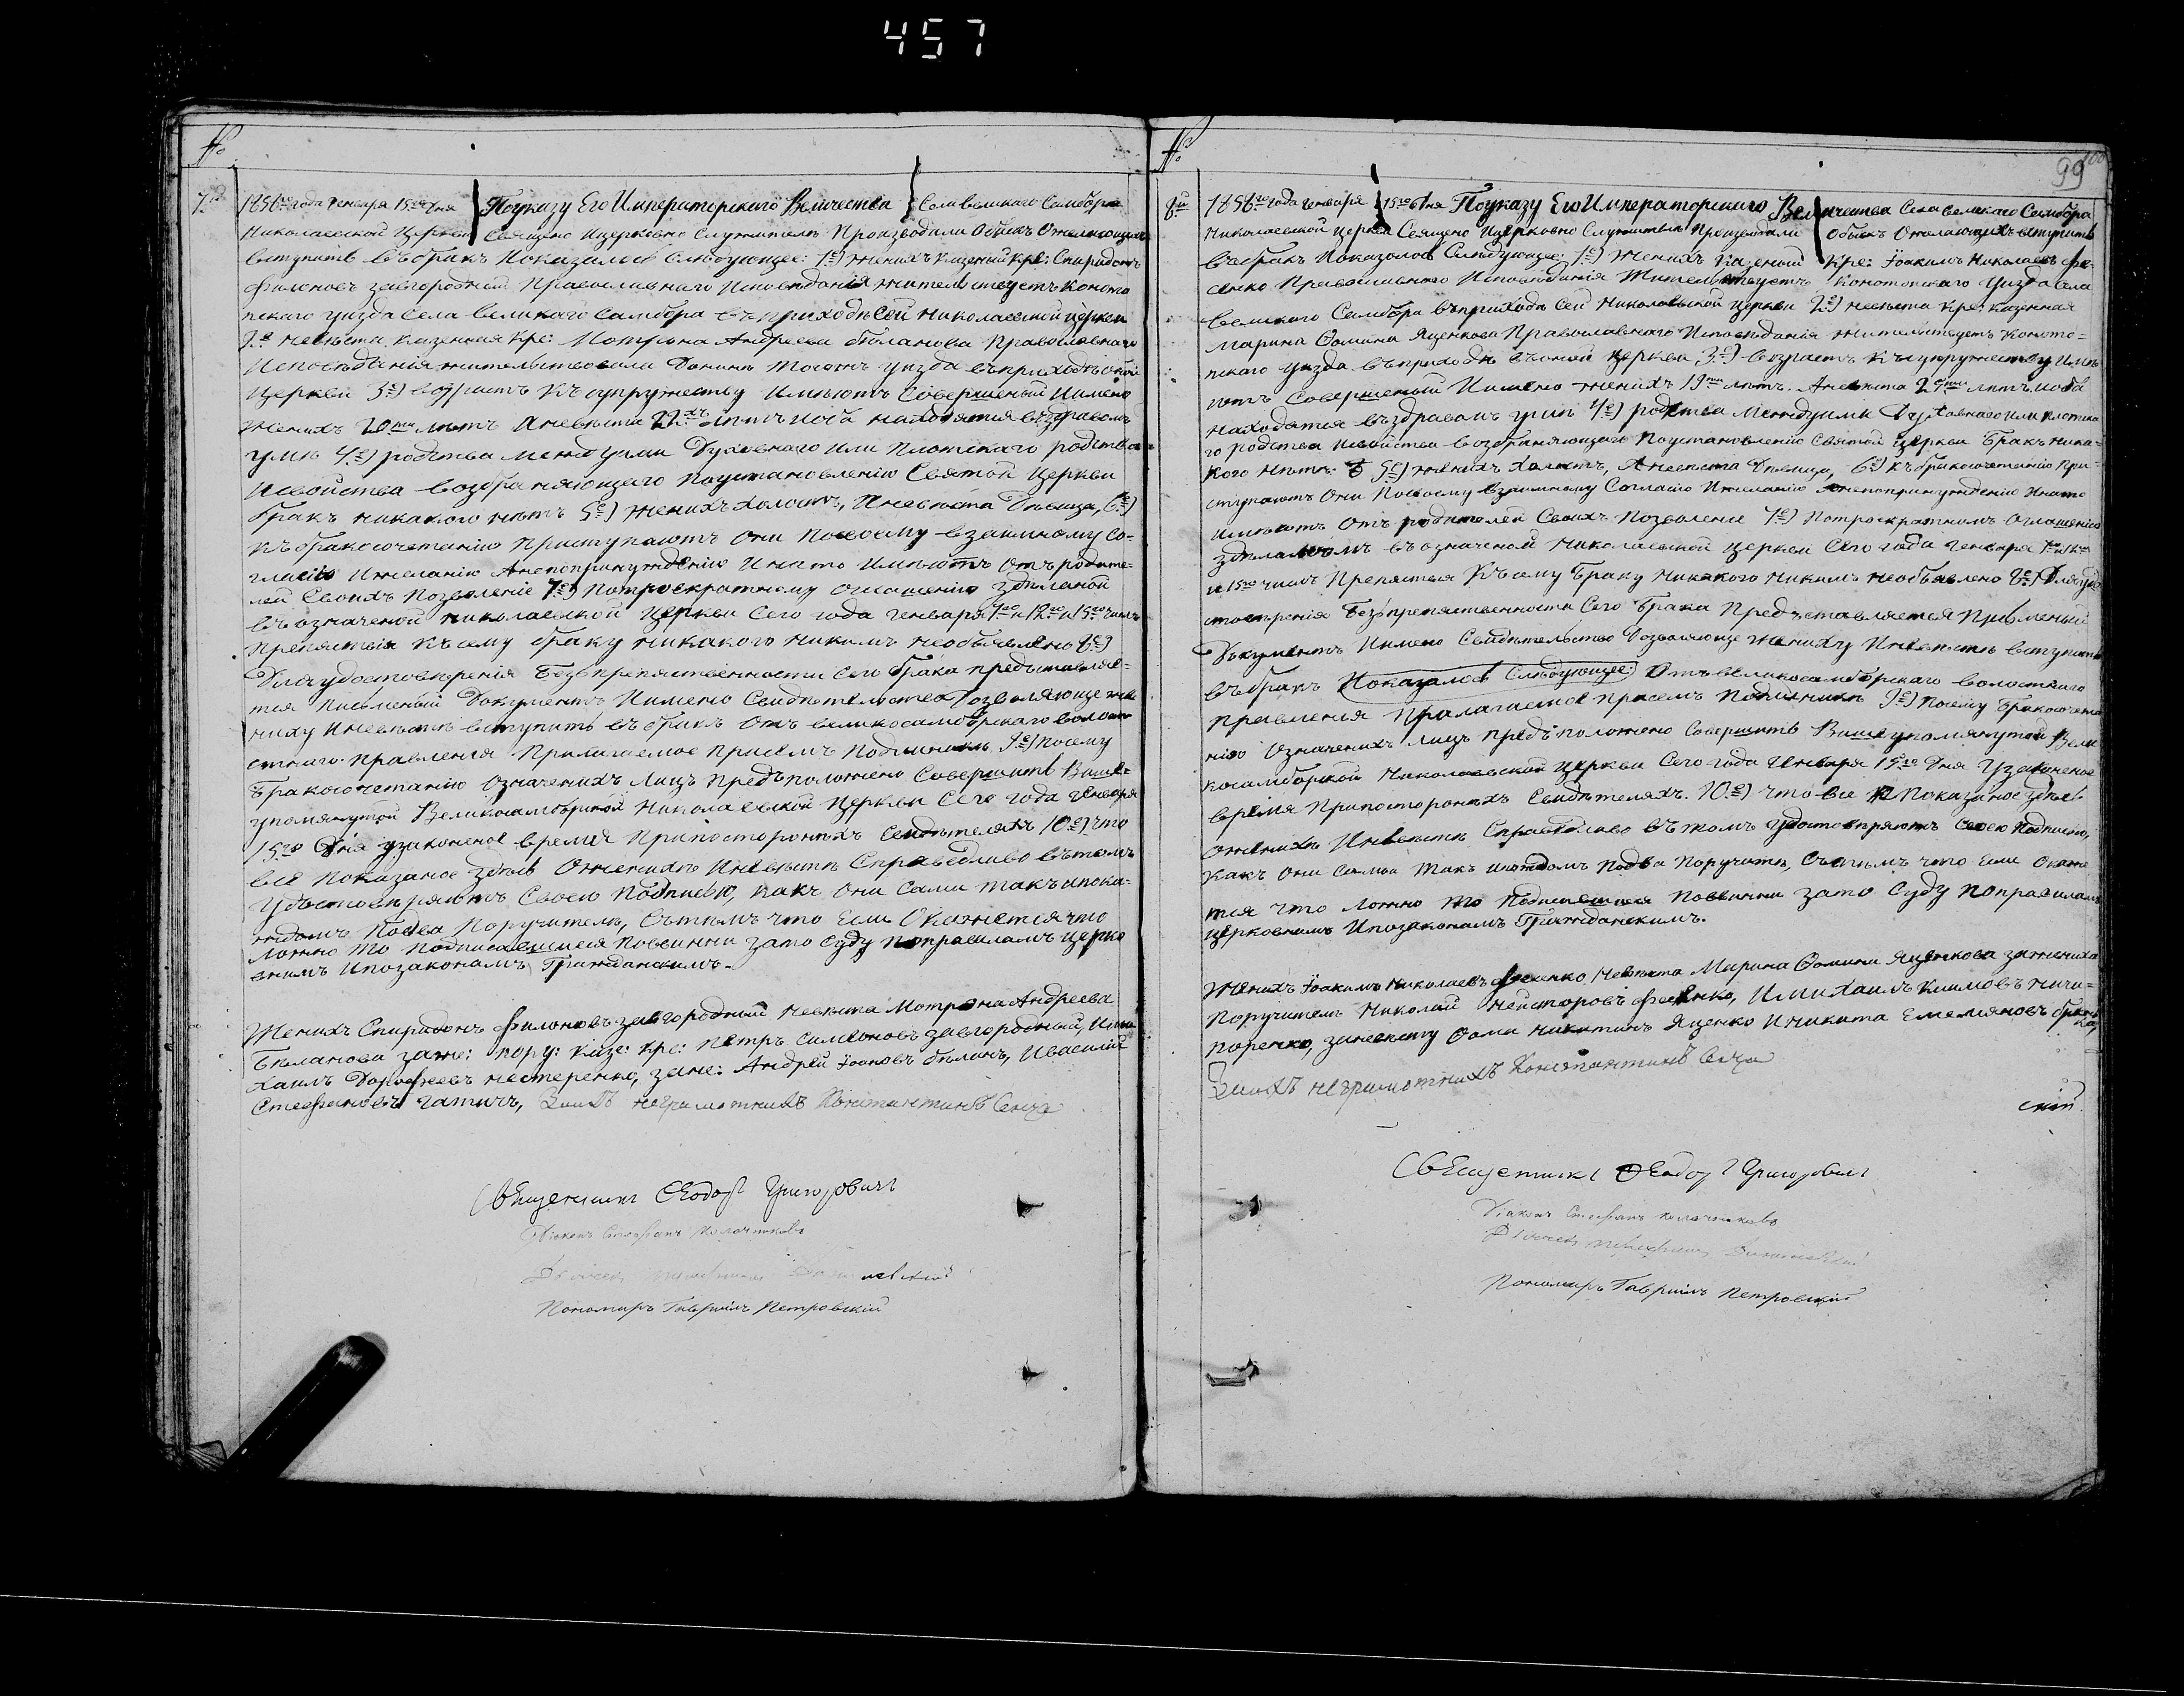 457
№
7й 1856го года Генваря 15го дня По указу Его Императорского Величества Села великого Самбора
Николаевской Церкви Священо и церковно Служители Производили Обыск О желающих
вступить въ бракъ и оказалось Следующее: 1е) женихъ казеный кре: Спиридонъ
Филоновъ завгородний Православнаго Исповедания жительствуетъ Коното
пского уезда Села великого Самбора въ приходе Сей Николаевской церкви
2е невеста казенная кре: Мотрона Андреева Беланова Православнаго
Исповедания жительствовала Донине Тогожъ уезда въ приходе оной
Церкви 3е) возрастъ къ супружеству Имеютъ Совершеный Имено
женихъ 20ти летъ А невеста 22хъ летъ и оба находятся въ здравомъ
уме 4е) родства между ими Духовнаго или Плотскаго родства
И свойства возбраняющего По установлению Святой Церкви
бракъ никакого нетъ 5е) женихъ холостъ, И невеста Девица, 6е)
къ бракосочетанию приступаютъ они По своему взаимному Со-
гласию И желанию А не по принуждению И на то Имеютъ Отъ родите-
лей Своихъ Позволение 7е) По троекратному оглашению зделаной
въ означеной николаевской Церкви Сего года Генваря 7го и 12го и 15го чиселъ
препятствия къ сему браку никакого никимъ необъявлено 8е)
Для удостоверения Безпрепятственности Сего брака представляе-
тся Писменый Документъ Имено Свидетельство Дозволяющее же
ниху И невесте вступить въ бракъ Отъ великосамборского волост
стнаго правления Прилагаемое При семъ Подлиникъ 9е) По сему
Бракосочетанию Означенихъ Лицъ Предположено Совершить Вишe-
упомянутой Великосамборской Николаевской Церкви Сего года Генваря
15го Дня узаконеное время При постороннихъ Свидетеляхъ 10е) что
все Показаное здесь О женихе И невесте Справедливо въ томъ
Удостоверяютъ Своею Подписью, какъ они Сами такъ и по ка-
ждомъ По два Поручителя, Съ темъ что Если Окажется что
ложно То Подписавшиеся Повинни за то Суду по правиламъ Церко
внимъ И по законамъ Гражданскимъ.
Женихъ Спиридонъ Филоновъ завгородный Невеста Мотрона Андреева
Беланова за же: пору: Казе: кре: Петръ Симеоновъ завгородный, И ми
хаилъ Дорофеевъ нестеренко, за не: Андрей Іоановъ билан, И василий
Стефановъ гатичъ, За ихъ неграмотнихъ Константинъ Сенча
Священникъ Феодоръ Григоровичъ
Діаконъ Стефанъ Колочниковъ
Пономаръ Гавриилъ Петровскій
№
99
100
8й 1856го года Генваря 15го Дня По указу Его Императорского Величества Села великого Самбора
Николаевской церкви Священо И церковно Служители Производили Обыскъ О желающихъ вступить
въ бракъ И оказалось Следующее: 1е) Женихъ казеный Кре: Іоакимъ Николаевъ Фе-
сенко Православнаго Исповедания Жительствуетъ Конотопского Уезда Села
великого Самбора въ приходе Сей Николаевской церкви 2е) невеста Кре: казенная
Марина Фомина Яценкова Православнаго Исповедания жительствуетъ Коното-
пского уезда въ приходе въ оной церкви 3е) возрастъ къ супружеству име
ютъ Совершеный Имено женихъ 19ти летъ. А невеста летъ и оба
находятся въ здравомъ уме 4е) родства Между ими Духовнаго или плотска
го родства И свойства возбраняющего По установлению Святой церкви Бракъ ника-
кого нетъ. 5е) женихъ Холостъ, А невеста Девица, 6е) къ бракосочетанию при-
ступаютъ Они По своему взаимному Согласию И желанию А не по принуждению И на то
имеютъ Отъ родителей Своихъ Позволение 7е) По троекратномъ оглашению
зделанномъ въ означеной Николаевской церкви Сего года Генваря
и 15го чиселъ Препятствия Къ сему Браку Никакого Никимъ Необъявлено 8е) Для удо
стоверения Безпрепятственности Сего Брака Представляется Писменый
Документъ Имено Свидетельство Дозволяющее Жениху И невесте вступить
въ бракъ Показалось Следующее: Отъ великосамборского волостнаго
правления Прилагаемое При семъ Подлиникъ 9е) По сему Бракосочета
нию Означенихъ Лицъ Предположено Совершить Више упомянутой Вели
косамборской Николаевской Церкви Сего года Генваря 15го Дня Узаконеное
время При постороннихъ Свидетеляхъ. 10е) Что все Показаное здесь
О женихе И невесте Справедливо въ томъ удостоверяютъ Своею Подписью,
Какъ Они Сами Такъ и по каждомъ По два Поручители, Съ темъ что Если Окаже
тся что Ложно То Подписавшиеся Повинни за то Суду По правиламъ
церковнимъ И по законамъ Гражданскимъ.
Женихъ Іоакимъ Николаевъ Фесенко, Невеста Марина Фомина Яценкова за жениха
Поручители Николай Несторовъ Фесенко, И михаилъ Климовъ Ничи-
поренко, за невесту Фома Никитинъ Яценко И никита Емеляновъ
За ихъ неграмотнихъ Константинъ Сенча
Священникъ Феодоръ Григоровичъ
Діаконъ Стефанъ Колочниковъ
Пономаръ Гавриилъ Петровскій